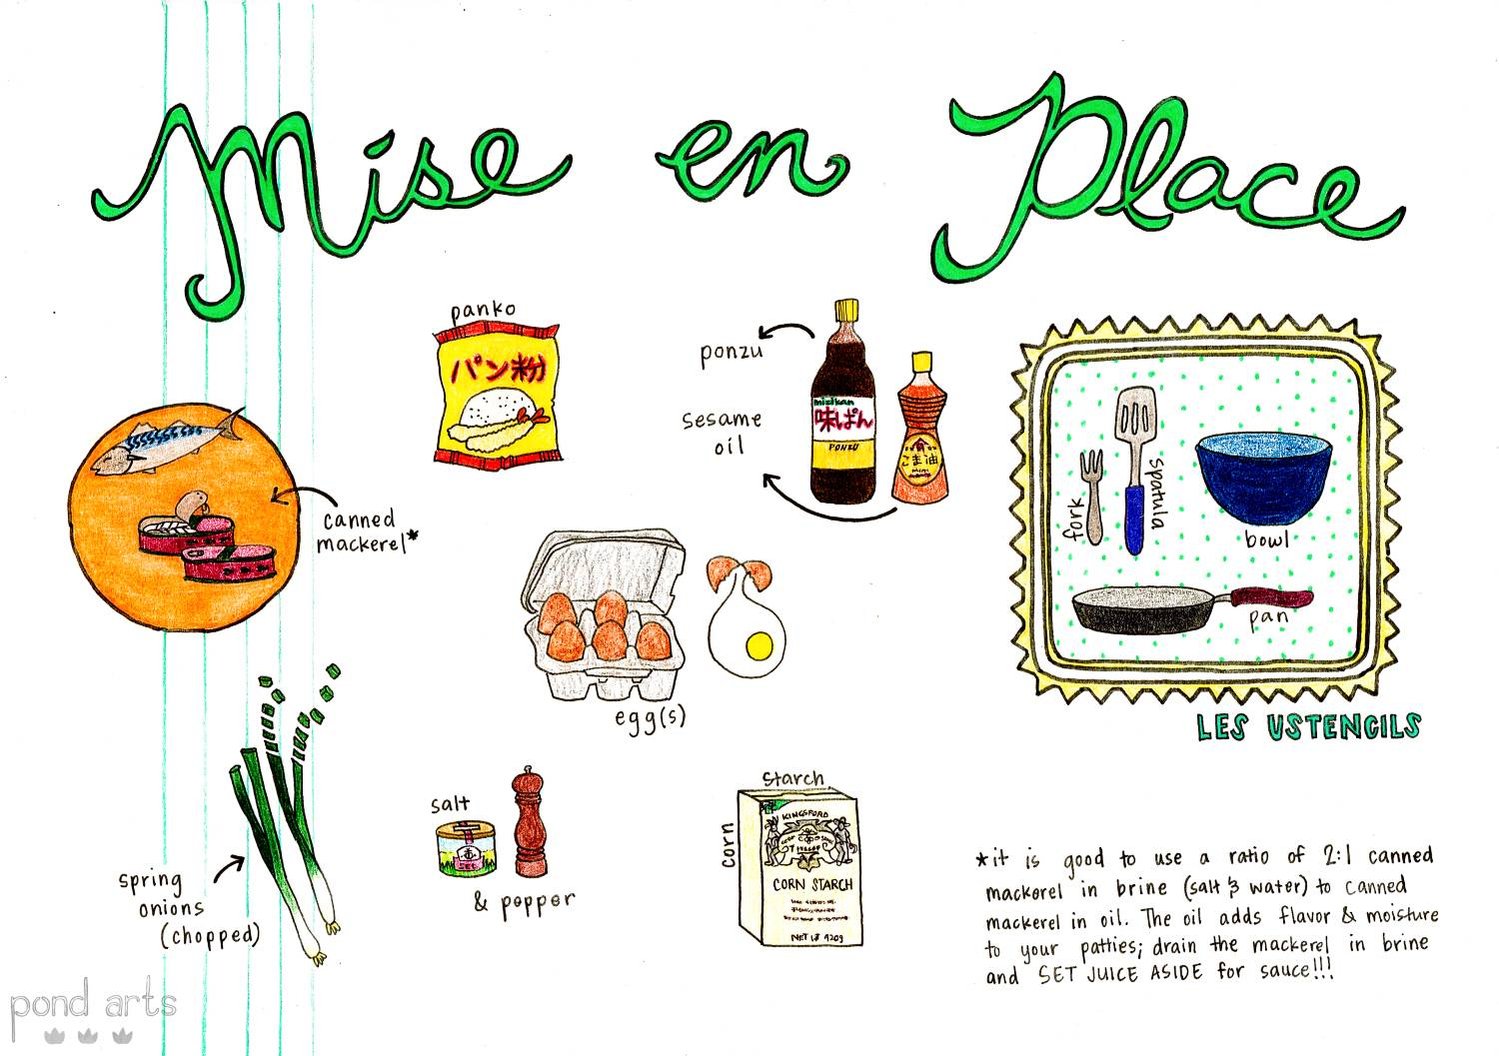 Mise en Place
panko
パン粉
ponzu
sesame
oil
mizkan
味ぽん
PONZU
ごま油
canned
mackerel*
egg(s)
fork
spatula
bowl
pan
LES USTENCILS
salt
& pepper
corn
starch
KINGSFORD
CORN STARCH
NET WT 420g
spring
onions
(chopped)
*it is good to use a ratio of 2:1 canned
mackerel in brine (salt & water) to canned
mackerel in oil. The oil adds flavor & moisture
to your patties; drain the mackerel in brine
and SET JUICE ASIDE for sauce!!!
pond arts